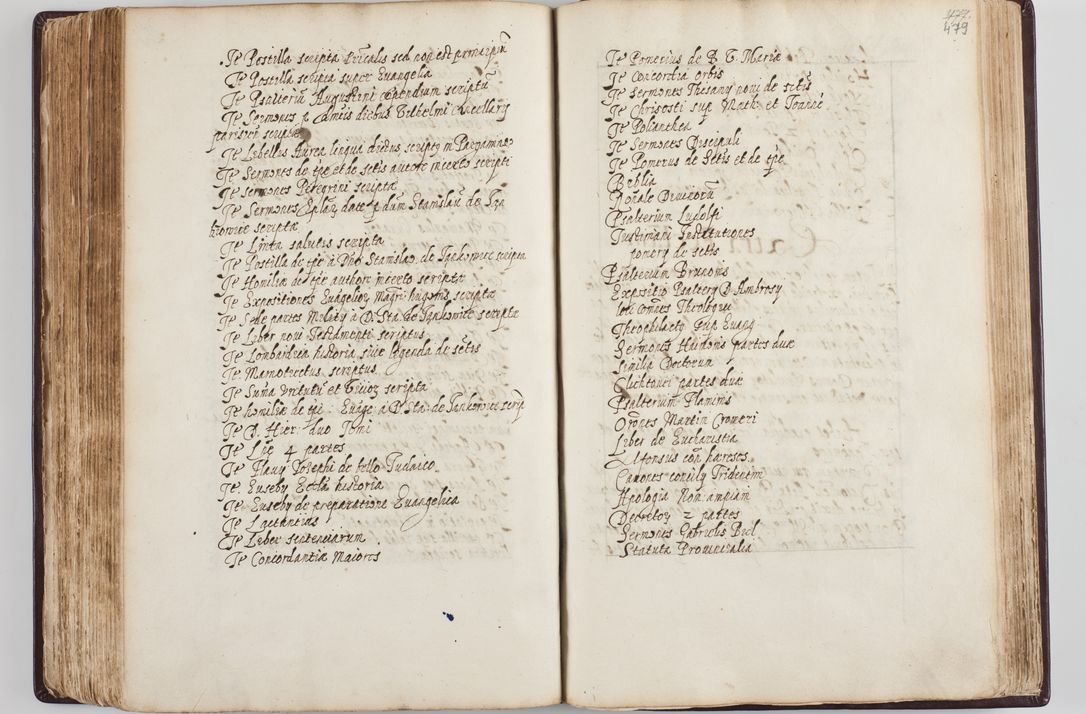 Ite Postilla scripta sed non est
Ite Postilla scripta super Euangelia
Ite Psalteriu Augustini scriptu
Ite Sermones p diebus Vilhelmi Cancellarij
parisien scripti
Ite Libellus Aurea lingua dictus script9 in Pargamino
Ite Sermones de tpe et de sctis autore incerto scripti
Ite sermones Peregrini scripta
Ite Sermones p dum Stanislau de
scripta
Ite Linea salutis scripta
Ite Postilla de tpe a Dno Stanislao de Iankowicz scripta
Ite Homiliæ de tpe authore incerto scripta
Ite Expositiones Euageliorz Magri scripta
Ite partes a D. Sta: de Iankowicz scripta
Ite Liber noui Testamenti scriptus
Ite Lombardica historia siue legenda de sctis
Ite Mamotrectus scriptus
Ite Suma virtutu et vitiorz scripta
Ite homiliæ de tpe Euage: a D Sta: de Iankowicz scrip
Ite D. Hier: duo Tomi
Ite 4 partes
Ite Flauij Iosephi de bello Iudaico
Ite Euseby Eccla historia
Ite Euseby de preparatione Euangelica
Ite Lactantius
Ite Liber sentenciarum
Ite Concordantiæ Maiores
479
Ite Pomerius de B. V. Maria
Ite Concordia orbis
Ite Sermones Thesaury noui de sctis
Ite Chrisosti sup Math: et Joanne
Ite Polianthea
Ite Sermones Discipuli
Ite Pomerius de Sctis et de tpe
Biblia
Ronale Diuinoru
Psalterium Ludolfi
Iustiniani Institutiones
pomery de sctis
Psalterium Brunonis
Expositio Psaltery D. Ambrosy
loci comunes Theologici
Theophilacty sup Euang
Sermones partes duæ
Similia Doctorum
Clichtouei partes duæ
Psalterium Flamini
Orones Martin Cromeri
Liber de Eucharistia
Alfonsus con hæreses
Canones concily Tridentini
Apologia
Decretorz 2 partes
Sermones Gabrielis Biel
Statuta Prouincialia